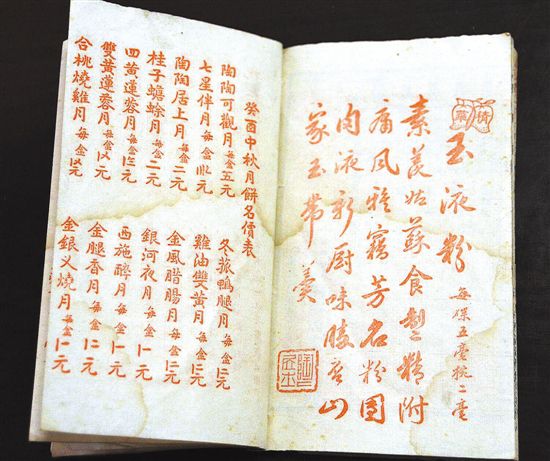 玉液粉 每碟五毫 二毫
素羨姑蘇食製精附
庸風雅竊芳名粉團
肉液新厨味勝 山
家玉帶羹
癸酉中秋月餅名價表
陶陶可觀月每盒五元
七星伴月每盒 元
陶陶居上月每盒二元
桂子蟾蜍月每盒二元
四黃蓮蓉月每盒 元
雙黃蓮蓉月每盒 元
合桃燒雞月每盒 元
冬菰鴨腿月每盒 元
雞油雙黃月每盒 元
金風腊腸月每盒 元
銀河夜月每盒一元
西施醉月每盒一元
金腿香月每盒 元
金銀乂燒月每盒 元